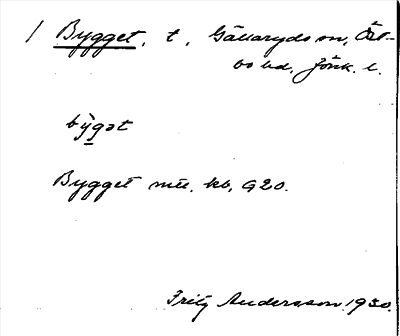 / Bygget, t, Gällaryds sn, Öst-
bo hd. Jönk. l.
bygət
Bygget mtl. kb, G20.
Fritz Andersson 1930.